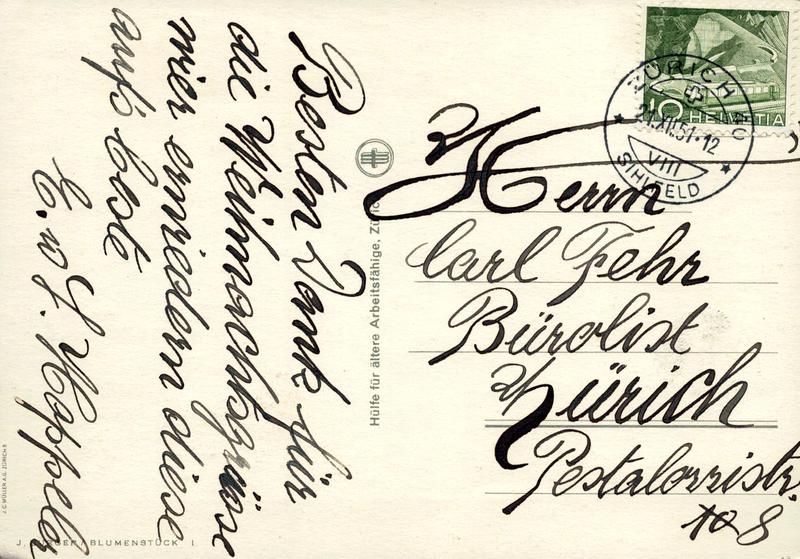 Besten Dank für
die Weihnachtsgrüsse
wir erwiedern diese
aufs beste
E. u J.
Hülfe für ältere Arbeitsfähige, Züric
ZÜRICH
21.XII.51-12
VIII
SIHLFELD
10 HELVETIA
Herrn
Carl Fehr
Bürolist
Zürich
Pestalozzistr.
8
J. C. MÜLLER A.G. ZÜRICH 8
BLUMENSTÜCK I